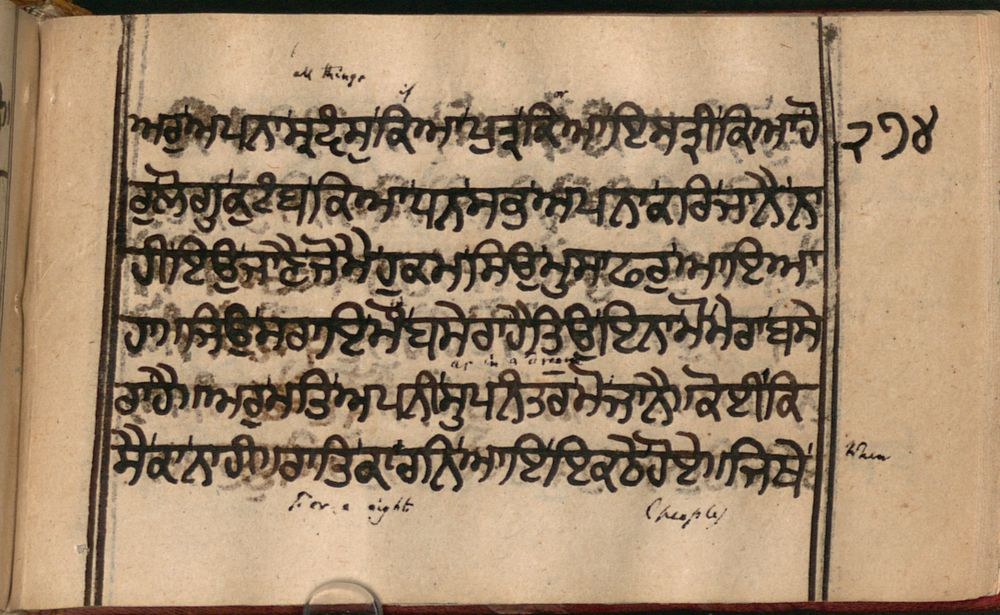 all things
if or
ਅਰੁ ਅਪਨਾ ਸ੍ਰਟੰਮੁ ਕਿਆ ਪੁਤ੍ਰ ਕਿਆ ਇਸਤ੍ਰੀ ਕਿਆ ਹੋ ੨੭੪
ਰੁ ਲੋਗੁ ਕੁਟੰਬ ਕਿਆ ਧਨ ਸਭੁ ਅਪਨਾ ਕਰਿ ਜਾਨੈ ਨਾ
ਹੀ ਇਉ ਜਾਣੈ ਜੋ ਮੈ ਹੁਕਮ ਸਿਉ ਮੁਸਾਫਰੁ ਆਇਆ
ਹਾ॥ ਜਿਉ ਸਰਾਇ ਮੋ ਬਸੇਰਾ ਹੈ ਤਿਉ ਇਨਾ ਮੋ ਮੇਰਾ ਬਸੇ
as in a dream
ਰਾ ਹੈ॥ ਅਰੁ ਮਤਿ ਅਪਨੀ ਸੁਪਨੰਤਰ ਮੋ ਜਾਨੈ॥ ਕੋਈ ਕਿ
ਸੈ ਕਾ ਨਾਹੀ॥ ਰਾਤਿ ਕਾ ਰਨਿ ਆਇ ਇਕਠੇ ਹੋਏ॥ ਜਿਥੇ When
For a night (people)